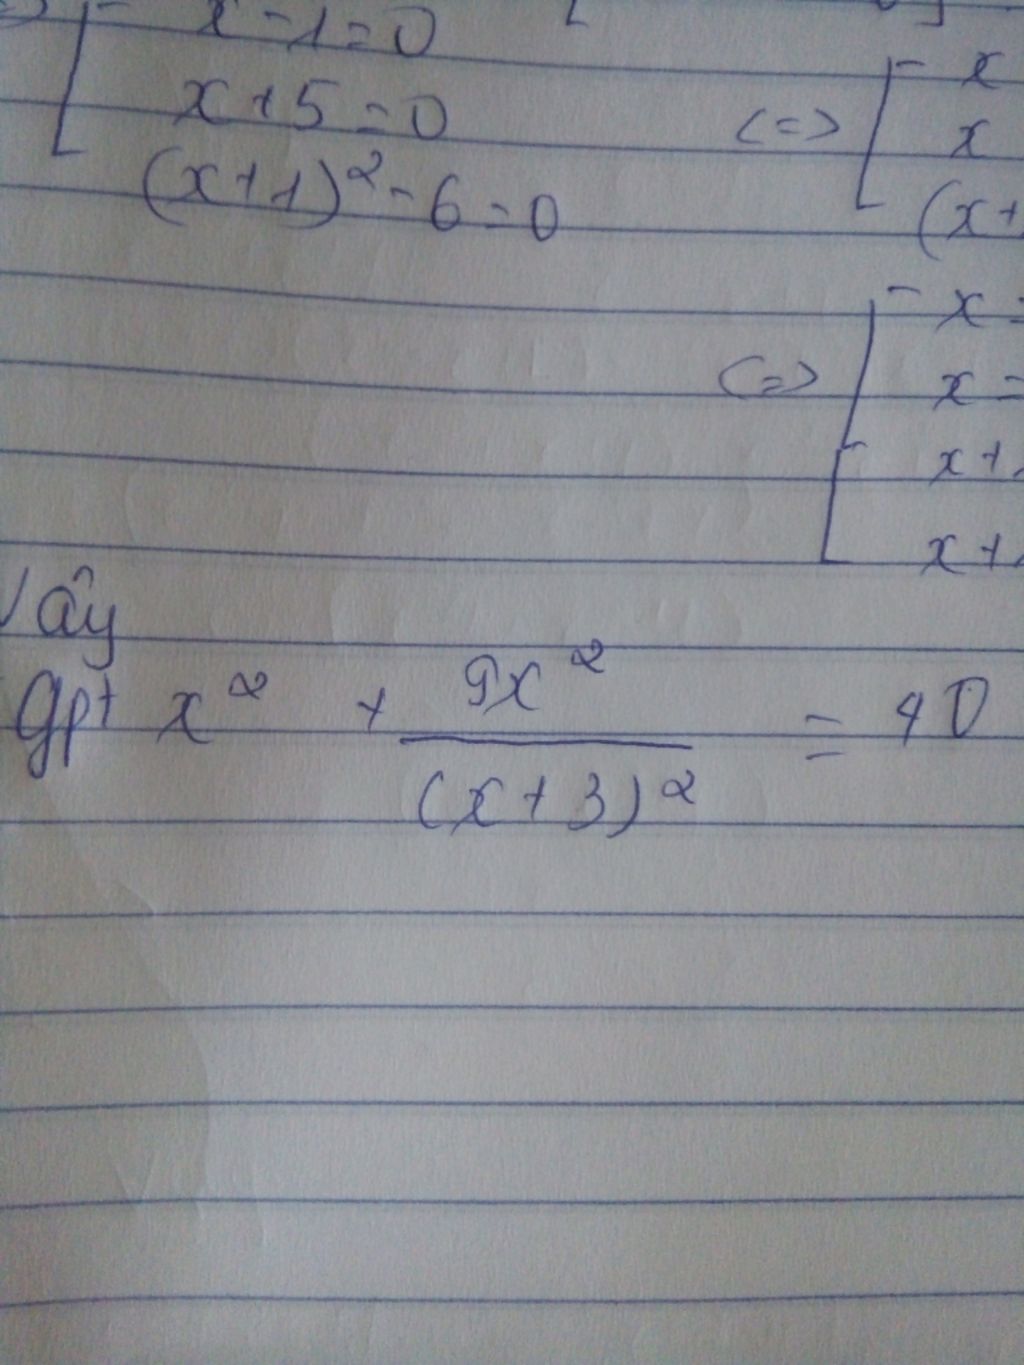 x - 1 = 0
x + 5 = 0
(x + 1)² - 6 = 0
<=> [ x
x
(x +
<=> [ x =
x =
x +
x +
Vậy
Gpt x² + 9x² / (x + 3)² = 40